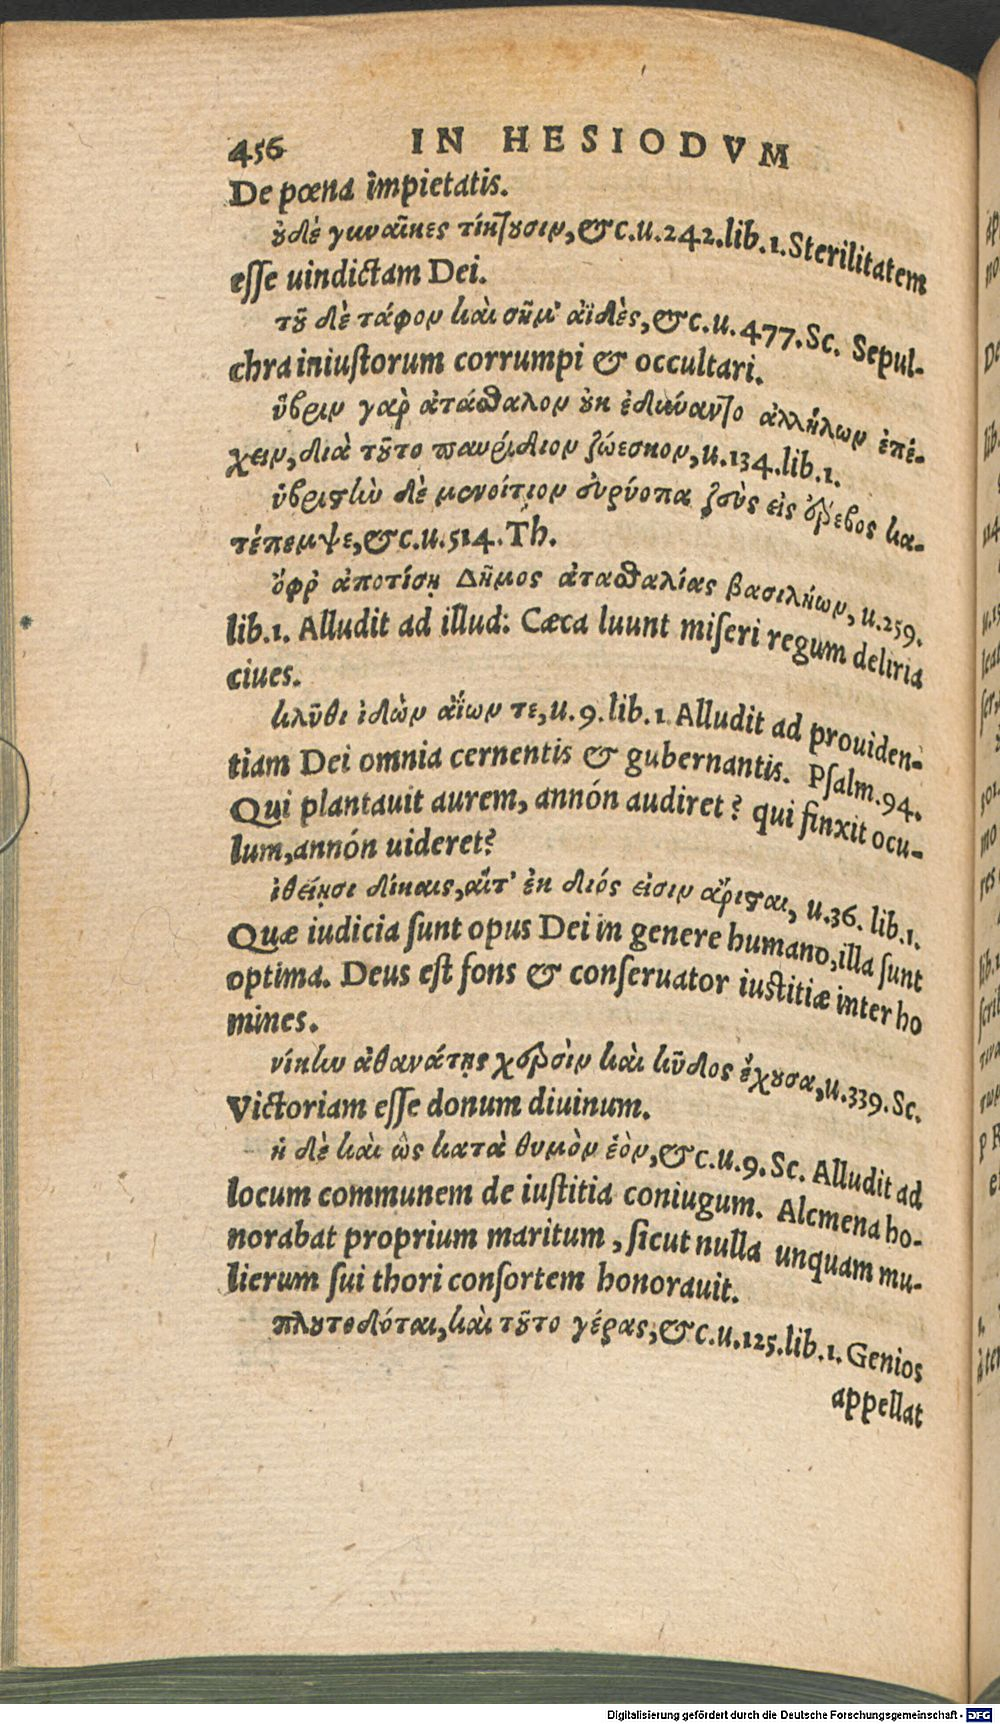 456 IN HESIODVM
De pœna impietatis.
ȣδὲ γυναῖκες τίκτȣσιν, &c. u. 242. lib. 1. Sterilitatem
esse uindictam Dei.
τȣ͂ δὲ τάφον καὶ σῆμ' ἀϊδὲς, &c. u. 477. Sc. Sepul-
chra iniustorum corrumpi & occultari.
ὕβριν γαρ̀ ἀτάσθαλον ȣκ ἐδύναντο ἀλλήλων ἐπέ-
χειν, διὰ τȣ͂το παυρίδιον ζώεσκον, u. 134. lib. 1.
ὑβριστὴν δὲ μενοίτιον εὐρύοπα ζεὺς εἰς ἔρεβος κα-
τέπεμψε, &c. u. 514. Th.
ὄφῤ ἀποτίσῃ Δῆμος ἀτασθαλίας βασιλήων, u. 259.
lib. 1. Alludit ad illud: Cæca luunt miseri regum deliria
ciues.
κλῦθι ἰδὼν ἀΐων τε, u. 9. lib. 1. Alludit ad prouiden-
tiam Dei omnia cernentis & gubernantis. Psalm. 94.
Qui plantauit aurem, annón audiret? qui finxit ocu-
lum, annón uideret?
ἰθείῃσι δίκαις, αἵτ' ἐκ διός εἰσιν ἄρισται, u. 36. lib. 1.
Quæ iudicia sunt opus Dei in genere humano, illa sunt
optima. Deus est fons & conseruator iustitiæ inter ho
mines.
νίκην ἀθανάτῃς χερσὶν καὶ κῦδος ἔχȣσα, u. 339. Sc.
Victoriam esse donum diuinum.
ἡ δὲ καὶ ὣς κατὰ θυμὸν ἑὸν, &c. u. 9. Sc. Alludit ad
locum communem de iustitia coniugum. Alcmena ho-
norabat proprium maritum, sicut nulla unquam mu-
lierum sui thori consortem honorauit.
πλȣτοδόται, καὶ τȣ͂το γέρας, &c. u. 125. lib. 1. Genios
appellat
Digitalisierung gefördert durch die Deutsche Forschungsgemeinschaft - DFG